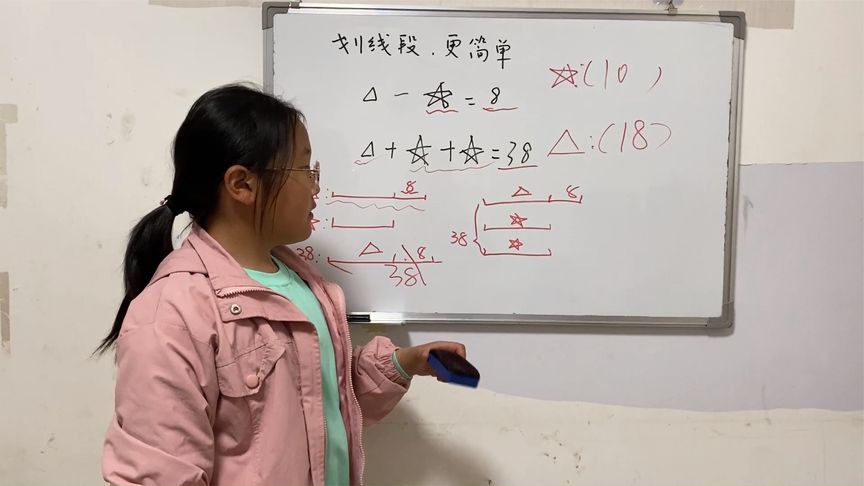 划线段.更简单
△-☆=8
☆:(10)
△+☆+☆=38
△:(18)
8
△ 8
☆
38
☆
38: △ 8
38